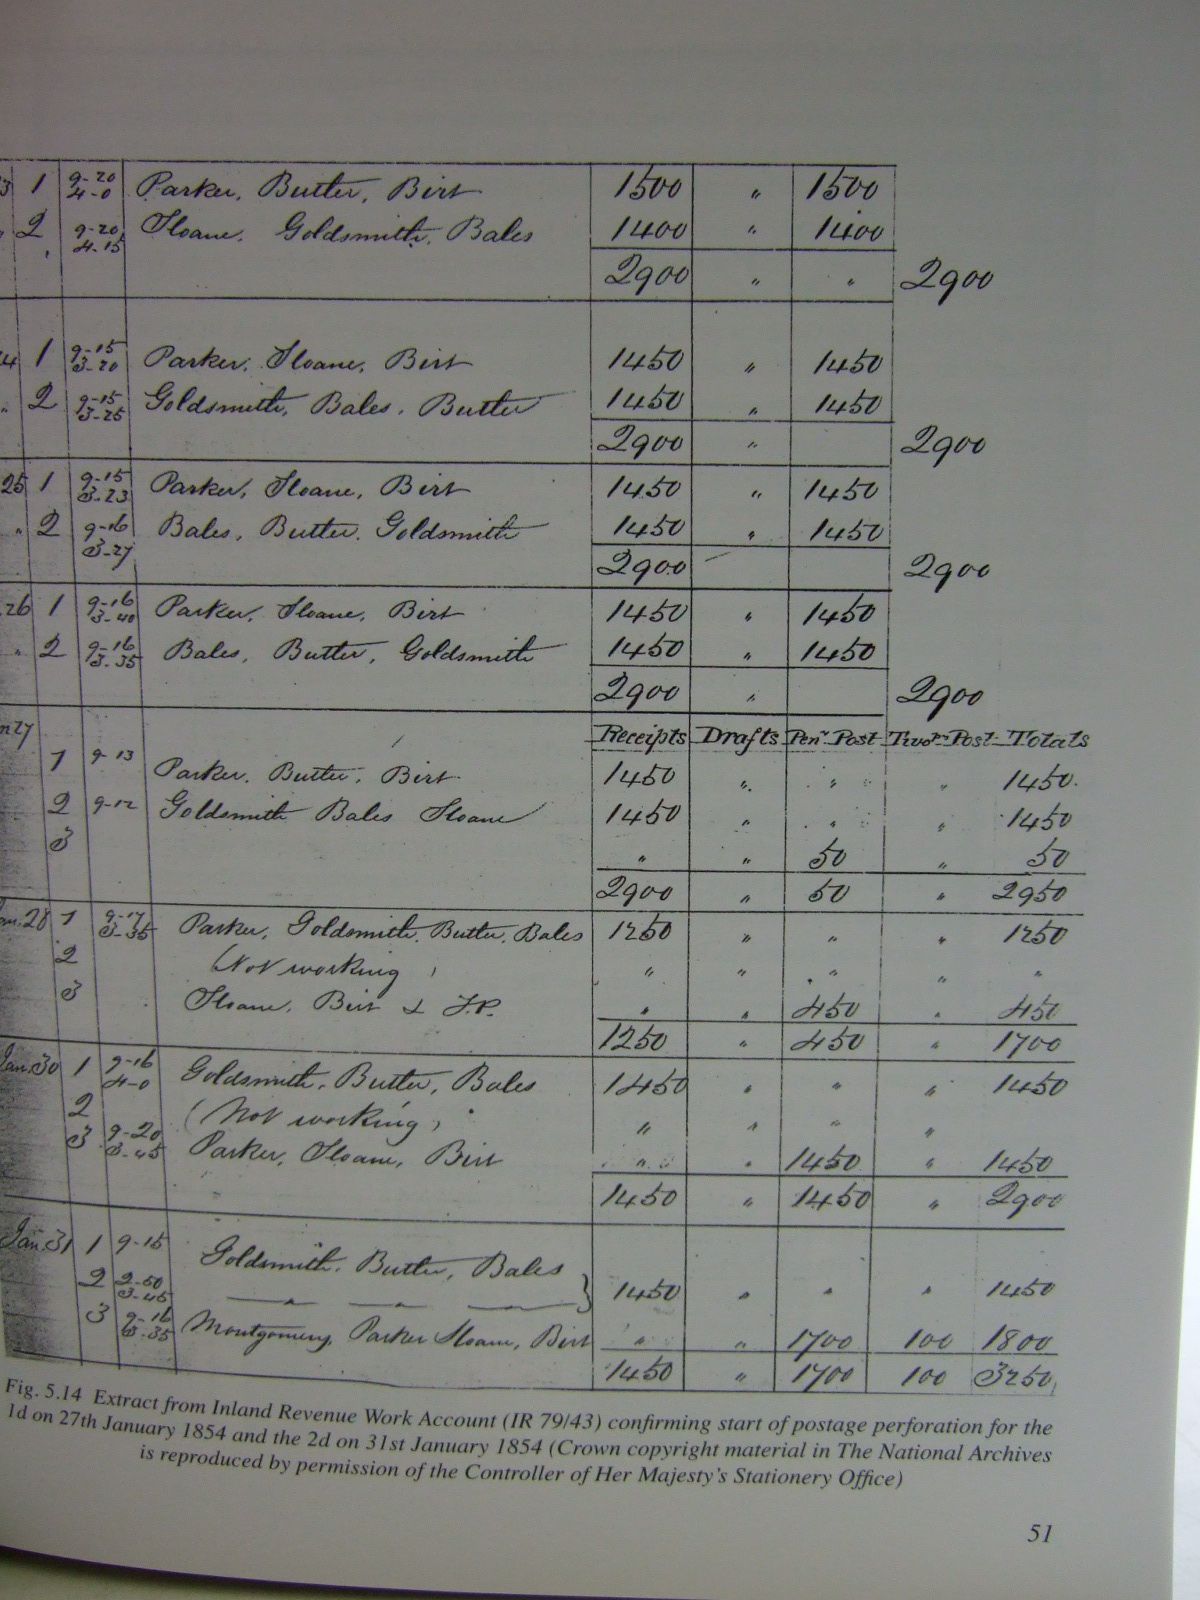 3 1 9-20 Parker, Butler, Birt 1500 " 1500
4-0
" 2 9-20 Sloane, Goldsmith, Bales 1400 " 1400
4-15
2900 " " 2900
24 1 9-15 Parker, Sloane, Birt 1450 " 1450
3-20
" 2 9-15 Goldsmith, Bales, Butler 1450 " 1450
3-25
2900 " 2900
25 1 9-15 Parker, Sloane, Birt 1450 " 1450
3-23
" 2 9-16 Bales, Butler, Goldsmith 1450 " 1450
3-27
2900 2900
26 1 9-16 Parker, Sloane, Birt 1450 " 1450
3-40
" 2 9-16 Bales, Butler, Goldsmith 1450 " 1450
3-35
2900 " 2900
n 27 Receipts Drafts Peny Post Twopy Post Totals
1 9-13 Parker, Butler, Birt 1450 " " " 1450
2 9-12 Goldsmith Bales Sloane 1450 " " " 1450
3 " " 50 " 50
2900 " 50 " 2950
Jan. 28 1 9-17 Parker, Goldsmith, Butler, Bales 1250 " " " 1250
3-35
2 (Not working) " " " " "
3 Sloane, Birt & J.P. " " 450 " 450
1250 " 450 " 1700
Jan. 30 1 9-16 Goldsmith, Butler, Bales 1450 " " " 1450
4-0
2 (Not working) " " " "
3 9-20 Parker, Sloane, Birt " " 1450 " 1450
3-45
1450 " 1450 " 2900
Jan. 31 1 9-15 Goldsmith, Butler, Bales
2 2-50 1450 " " " 1450
3-45
3 9-16 Montgomery, Parker Sloane, Birt " " 1700 100 1800
3-35
1450 " 1700 100 3250
Fig. 5.14 Extract from Inland Revenue Work Account (IR 79/43) confirming start of postage perforation for the
1d on 27th January 1854 and the 2d on 31st January 1854 (Crown copyright material in The National Archives
is reproduced by permission of the Controller of Her Majesty's Stationery Office)
51